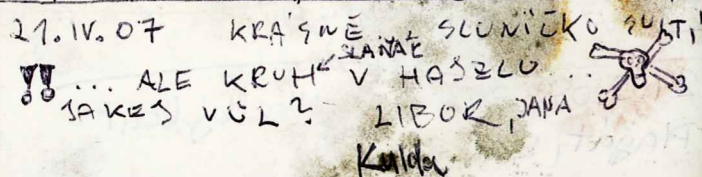 21.IV.07 KRÁSNĚ SLUNÍČKO SVÍTÍ,
SLAŇÁK
!! ... ALE KRUH V HAJZLU ...
JAKEJ VŮL? LIBOR, JANA
Kulda